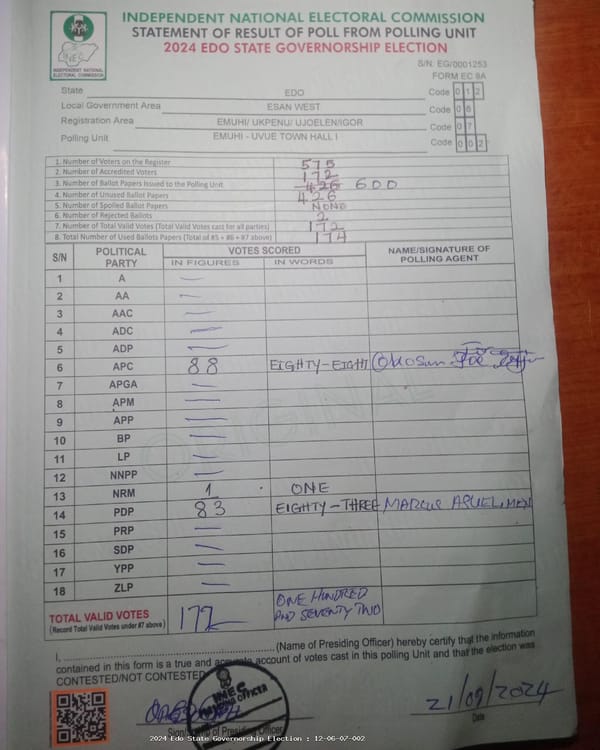 INDEPENDENT NATIONAL ELECTORAL COMMISSION
STATEMENT OF RESULT OF POLL FROM POLLING UNIT
2024 EDO STATE GOVERNORSHIP ELECTION
INEC
INDEPENDENT NATIONAL ELECTORAL COMMISSION
S/N. EG/0001253
FORM EC 8A
State EDO Code 0 1 2
Local Government Area ESAN WEST Code 0 6
Registration Area EMUHI/ UKPENU/ UJOELEN/IGOR Code 0 7
Polling Unit EMUHI - UVUE TOWN HALL I Code 0 0 2
1. Number of Voters on the Register 575
2. Number of Accredited Voters 172
3. Number of Ballot Papers Issued to the Polling Unit 426 600
4. Number of Unused Ballot Papers 426
5. Number of Spoiled Ballot Papers NONE
6. Number of Rejected Ballots 2
7. Number of Total Valid Votes (Total Valid Votes cast for all parties) 172
8. Total Number of Used Ballots Papers (Total of #5 + #6 + #7 above) 174
S/N POLITICAL PARTY VOTES SCORED NAME/SIGNATURE OF POLLING AGENT
IN FIGURES IN WORDS
1 A —
2 AA —
3 AAC —
4 ADC —
5 ADP —
6 APC 88 EIGHTY-EIGHT Okosun Joe
7 APGA —
8 APM —
9 APP —
10 BP —
11 LP —
12 NNPP —
13 NRM 1 ONE
14 PDP 83 EIGHTY-THREE MARCUS
15 PRP —
16 SDP —
17 YPP —
18 ZLP —
TOTAL VALID VOTES 172 ONE HUNDRED AND SEVENTY TWO
(Record Total Valid Votes under #7 above)
I, ............ (Name of Presiding Officer) hereby certify that the information
contained in this form is a true and accurate account of votes cast in this polling Unit and that the election was
CONTESTED/NOT CONTESTED
INEC
PRESIDING OFFICER
21/09/2024
Signature of Presiding Officer Date
2024 Edo State Governorship Election : 12-06-07-002